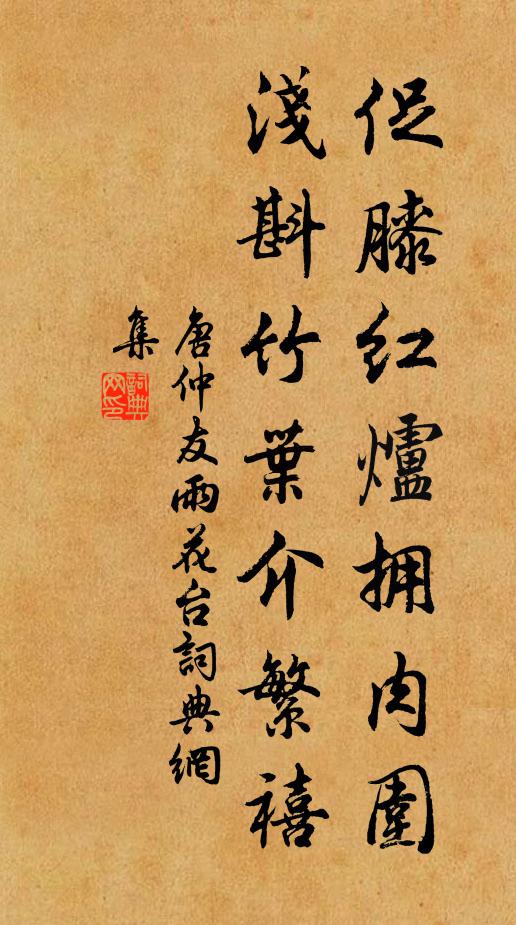 促膝紅爐拥肉圍
淺斟竹葉介繁禧
唐仲友雨花台詞典網
集
詞典
网印